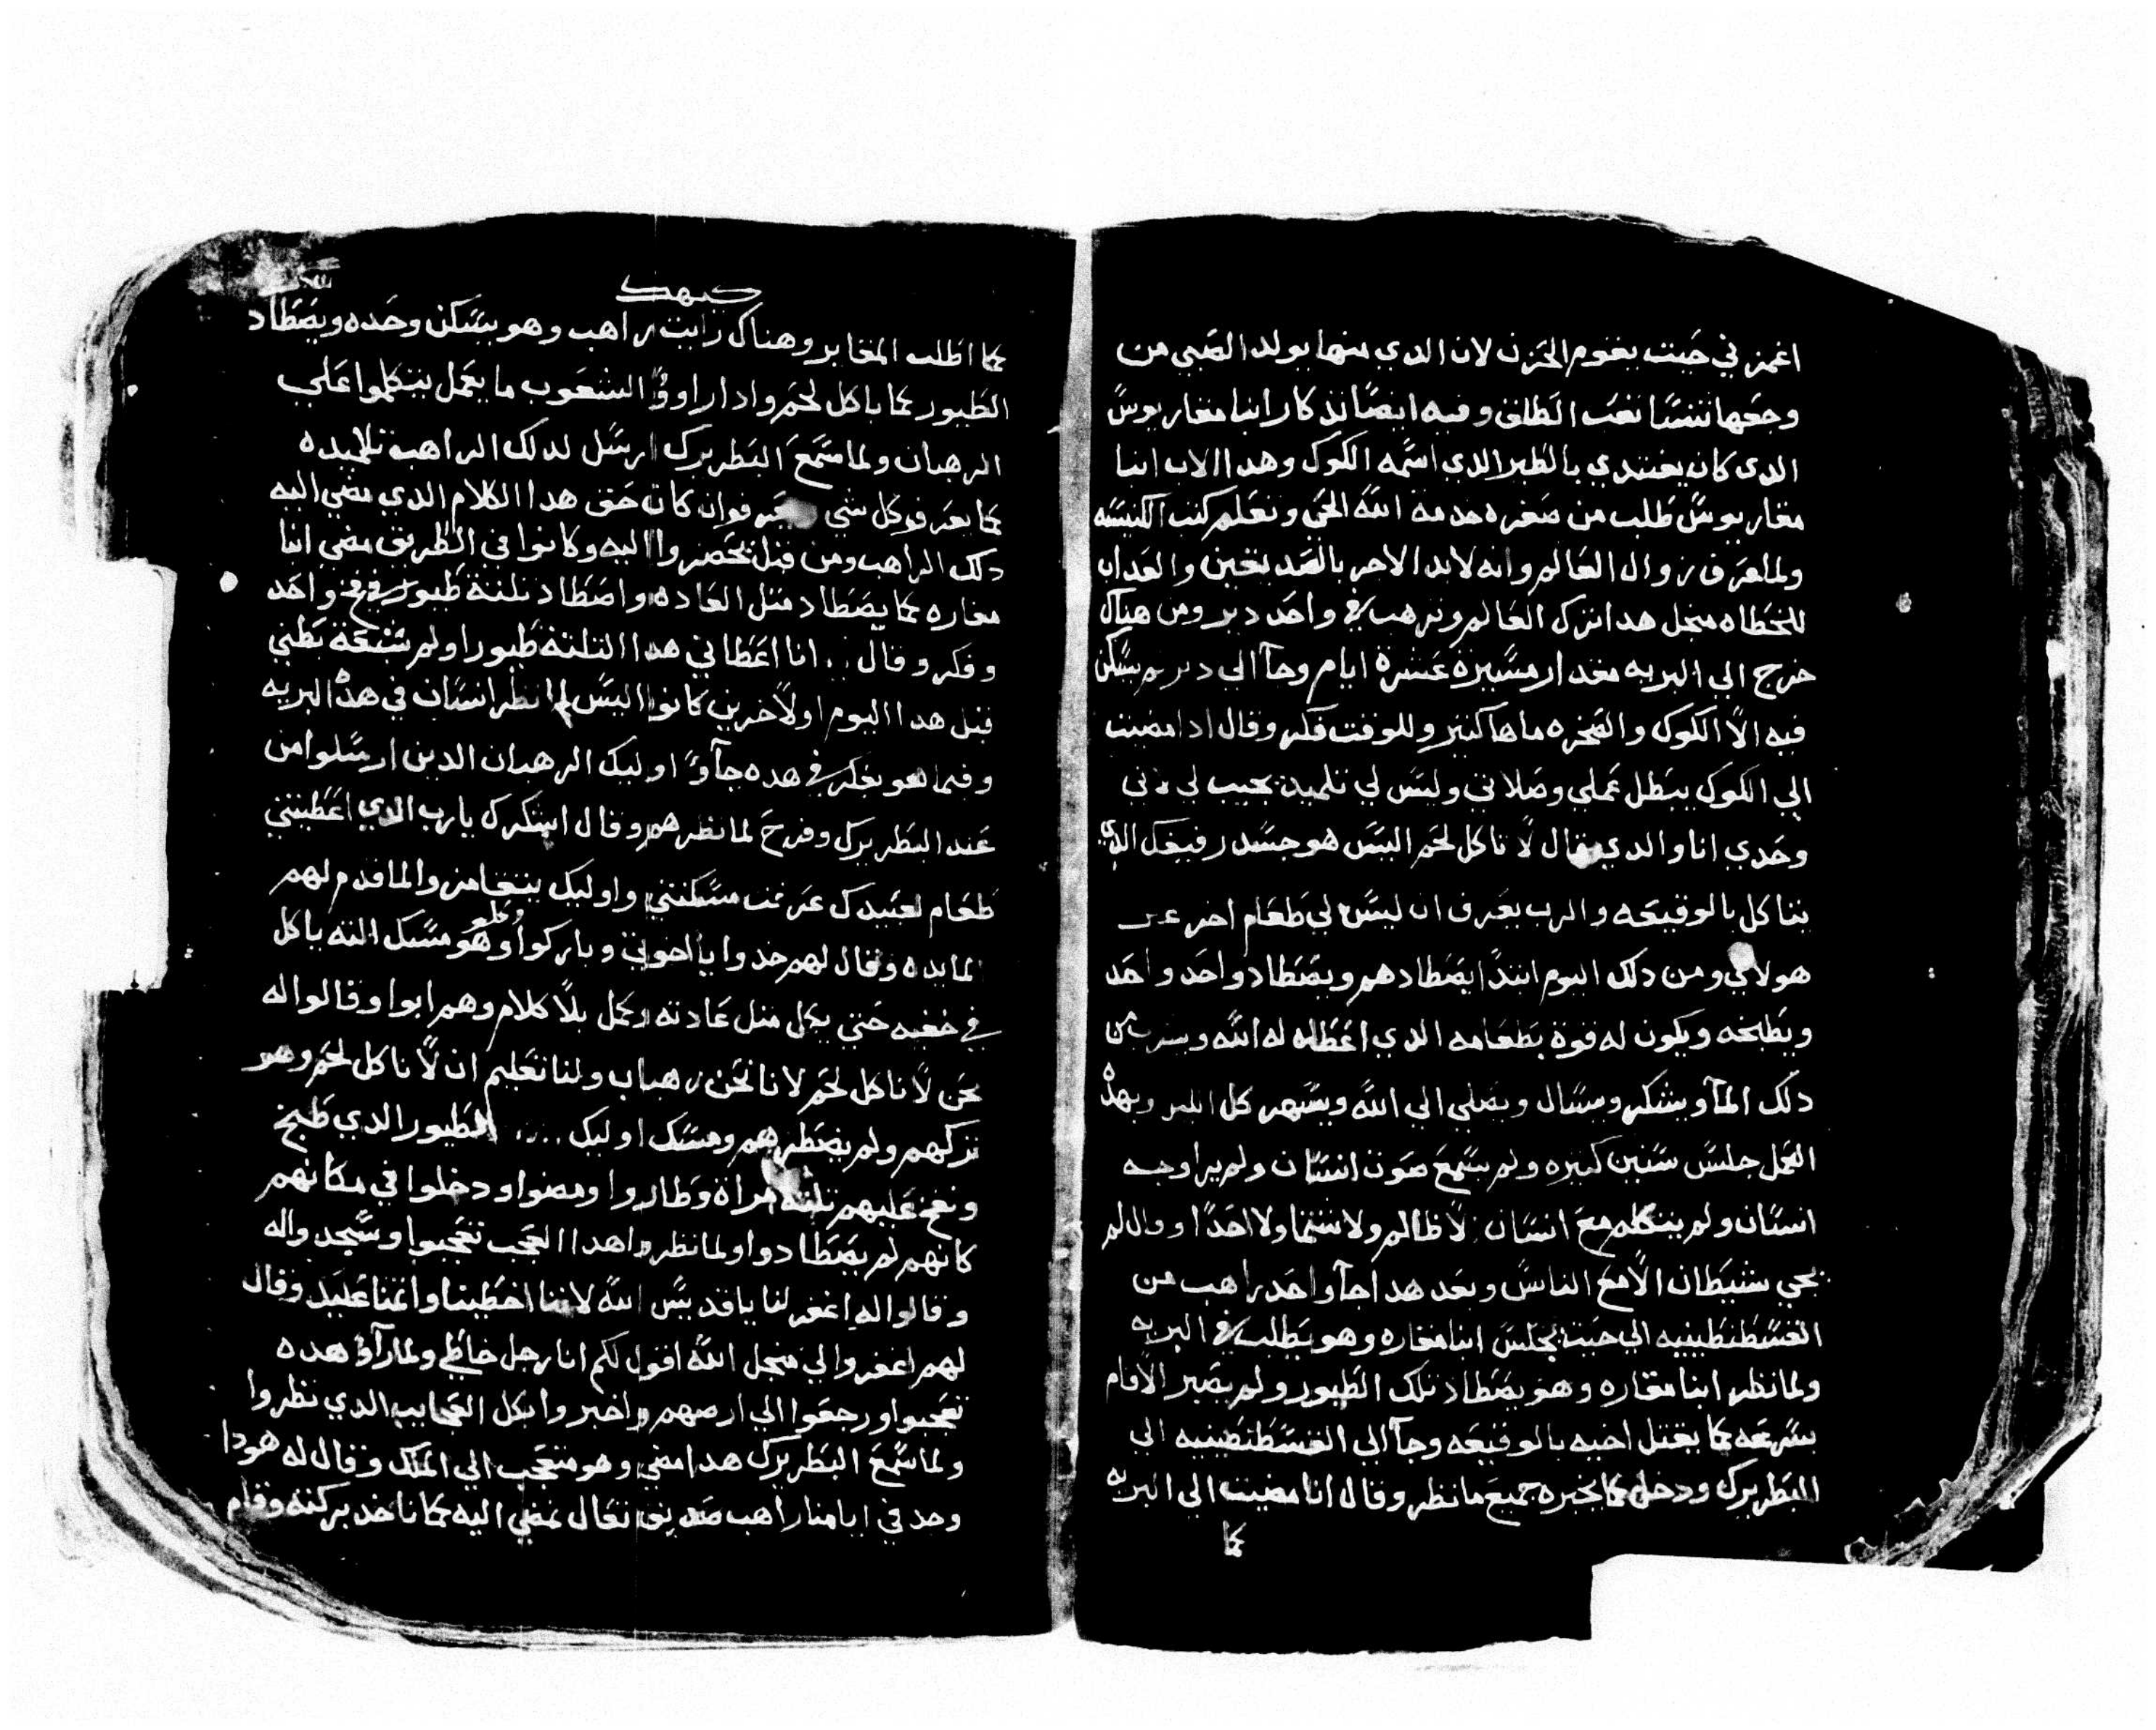 اغمز في حيت يقوم الحزن لان الدي منها يولد الصبي من
وجعها تنسا تعب الطلق وفيه ايضا تدكار ابنا مقاريوس
الدى كان يغتدي بالطير الدي اسمه الكوك وهدا الاب ابنا
مقاريوس طلب من صغره خدمه الله الحي وتعلم كتب الكنيسه
ولما عرف زوال العالم وانه لابد الاخر بالصديقين والعداب
للخطاه منجل هدا ترك العالم وترهب في واحد دير ومن هناك
خرج الي البريه مقدار مسيرة عشرة ايام وجآ الي دير لم يسكن
فيه الا الكوك والصخره ماها كتير وللوقت فكر وقال ادا مضيت
الي الكوك يبطل عملي وصلاتي وليس لي تلميد يجيب لي لاني
وحدي انا والدي يقال لا تاكل لحم اليس هو جسد رفيقك الدي
يتاكل بالوقيعه والرب يعرف ان ليس لي طعام اخر عير
هولاي ومن دلك اليوم ابتدا يصطادهم ويصطاد واحد واحد
ويطبخه ويكون له قوة بطعامه الدي اعطاه له الله ويشرب من
دلك المآ ويشكر ويسال ويصلي الي الله ويسهر كل الليل وبهده
العمل جلس سنين كتيره ولم يسمع صوت انسان ولم يرا وجه
انسان ولم يتكلم مع انسان لا ظالم ولا شتما ولا احدا وقال لم
يجي شيطان الا مع الناس وبعد هدا جآ واحد راهب من
القسطنطينيه الي حيت يجلس ابنا مقاره وهو يطلب في البريه
ولما نظر ابنا مقاره وهو يصطاد تلك الطيور ولم يصبر الا قام
بسرعه كما يقتل اخيه بالوقيعه وجآ الي القسطنطينيه الي
البطريرك ودخل كما يخبره جميع ما نظر وقال انا مضيت الي البريه
كما
كيهك
كما اطلب المقابر وهناك رايت راهب وهو يسكن وحده ويصطاد
الطيور كما ياكل لحم وادا راوا الشعوب ما يعمل يتكلموا علي
الرهبان ولما سمع البطريرك ارسل لدلك الراهب تلاميده
كما يعرفو كل شي وان كان حق هدا الكلام الدي مضي اليه
دلك الراهب ومن قبل يحضروا اليه وكانوا في الطريق مضي ابنا
مغاره كما يصطاد متل العاده واصطاد تلتة طيور في فخ واحد
وفكر وقال انا اعطاني هدا التلتة طيورا ولم شبعة بطني
قبل هدا اليوم او لاخرين كانوا اليس لم انظر انسان في هده البريه
وفيما هو يفكر في هده جآوا اوليك الرهبان الدين ارسلوا من
عند البطريرك وفرح لما نظرهم وقال اشكرك يارب الدي اعطيتني
طعام لعبيدك عرفت مسكنتي واوليك يتغامزوا لما قدم لهم
المايده وقال لهم خدوا يا اخوتي وباركوا وهو مسك التلته ياكل
في خفيه حتي يكل متل عادته وكمل بلا كلام وهم ابوا وقالوا له
نحن لا ناكل لحم لانا نحن رهبان ولنا تعليم ان لا ناكل لحم وهو
تركهم ولم يضطرهم ومسك اوليك الطيور الدي طبخ
ونفخ عليهم تلته مراة وطاروا ومضوا ودخلوا في مكانهم
كانهم لم يصطادوا ولما نظروا هدا العجب تعجبوا وسجدوا له
وقالوا له اغفر لنا يا قديس الله لاننا اخطينا واتمنا عليك وقال
لهم اغفروا لي منجل الله اقول لكم انا رجل خاطي ولما رآوا هده
تعجبوا ورجعوا الي ارضهم واخبروا بكل العجايب الدي نظروا
ولما سمع البطريرك هدا مضي وهو متعجب الي الملك وقال له هودا
وجد في ايامنا راهب صديق تعال نمضي اليه كما ناخد بركته وقام